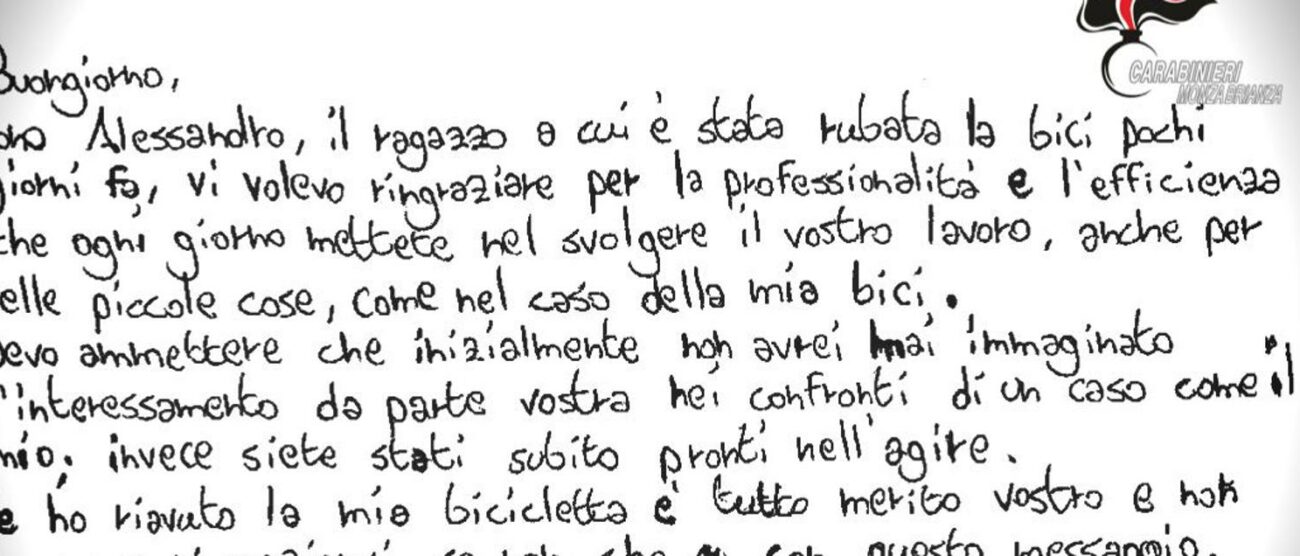 CARABINIERI
MONZA BRIANZA
Buongiorno,
ono Alessandro, il ragazzo a cui è stata rubata la bici pochi
giorni fa, vi volevo ringraziare per la professionalità e l'efficienza
che ogni giorno mettete nel svolgere il vostro lavoro, anche per
elle piccole cose, come nel caso della mia bici.
devo ammettere che inizialmente non avrei mai immaginato
l'interessamento da parte vostra nei confronti di un caso come il
mio, invece siete stati subito pronti nell'agire.
e ho riavuto la mia bicicletta è tutto merito vostro e non
se non che con questo messaggio.